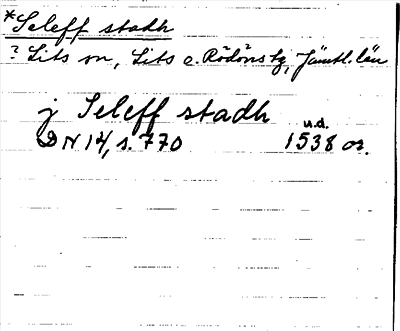 *Seleff stadh
? Lits sn, Lits o. Rödöns tg, Jämtl. län
j Seleff stadh u.d.
DN 14, s. 770 1538 or.